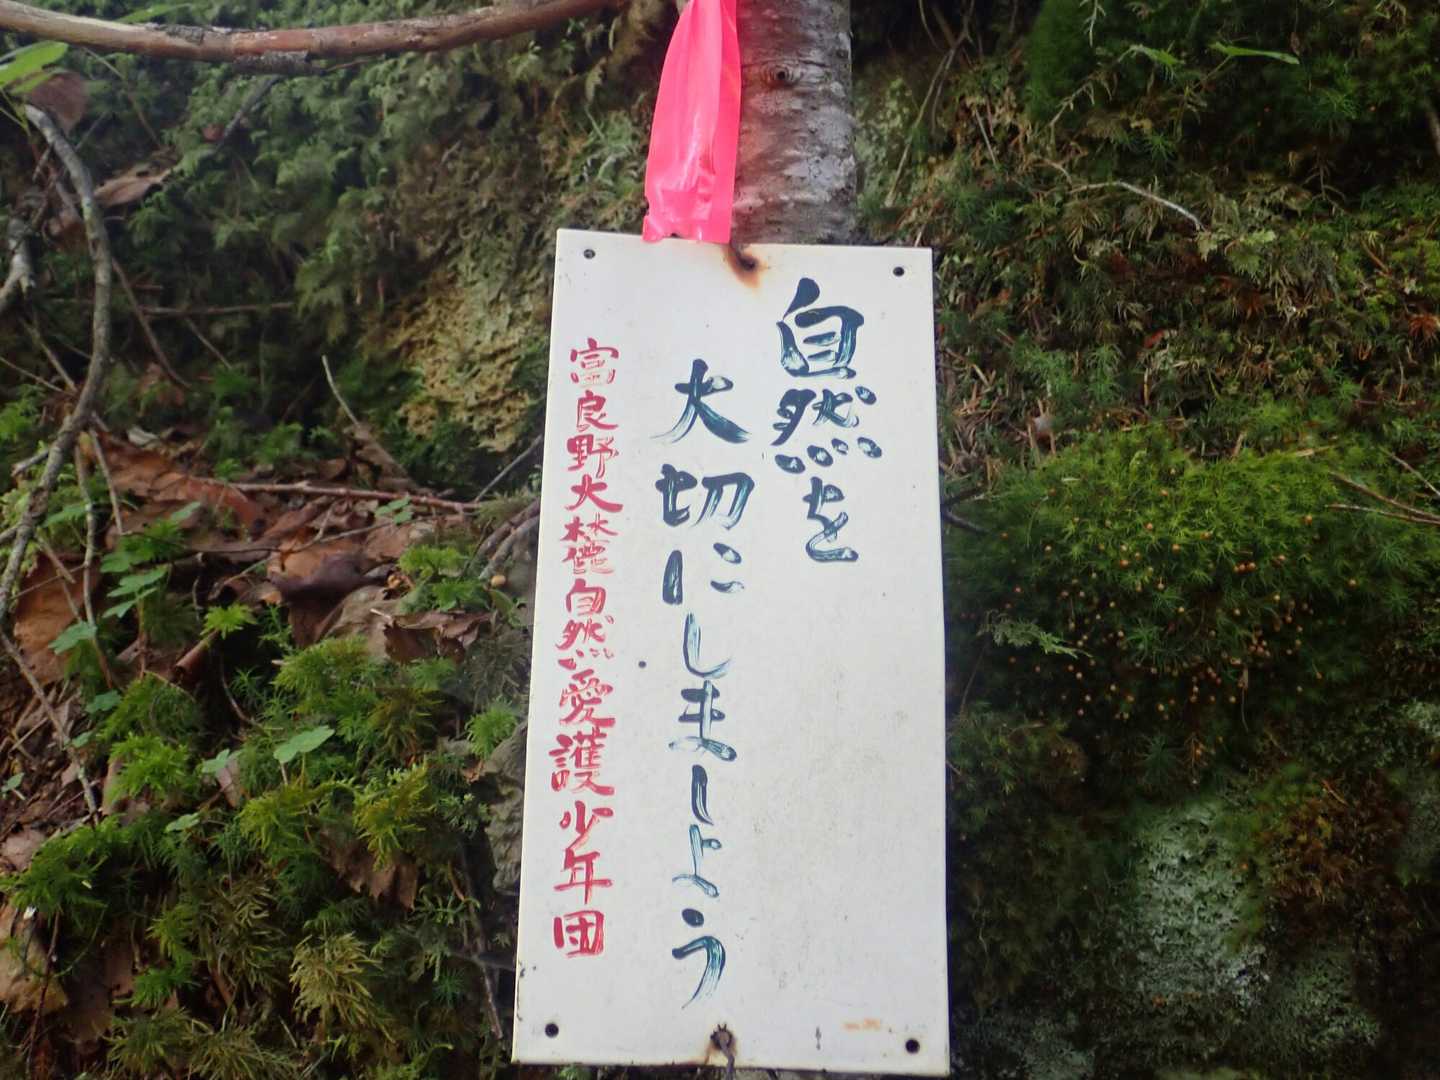 自然を
大切にしましょう
富良野大麓自然愛護少年団